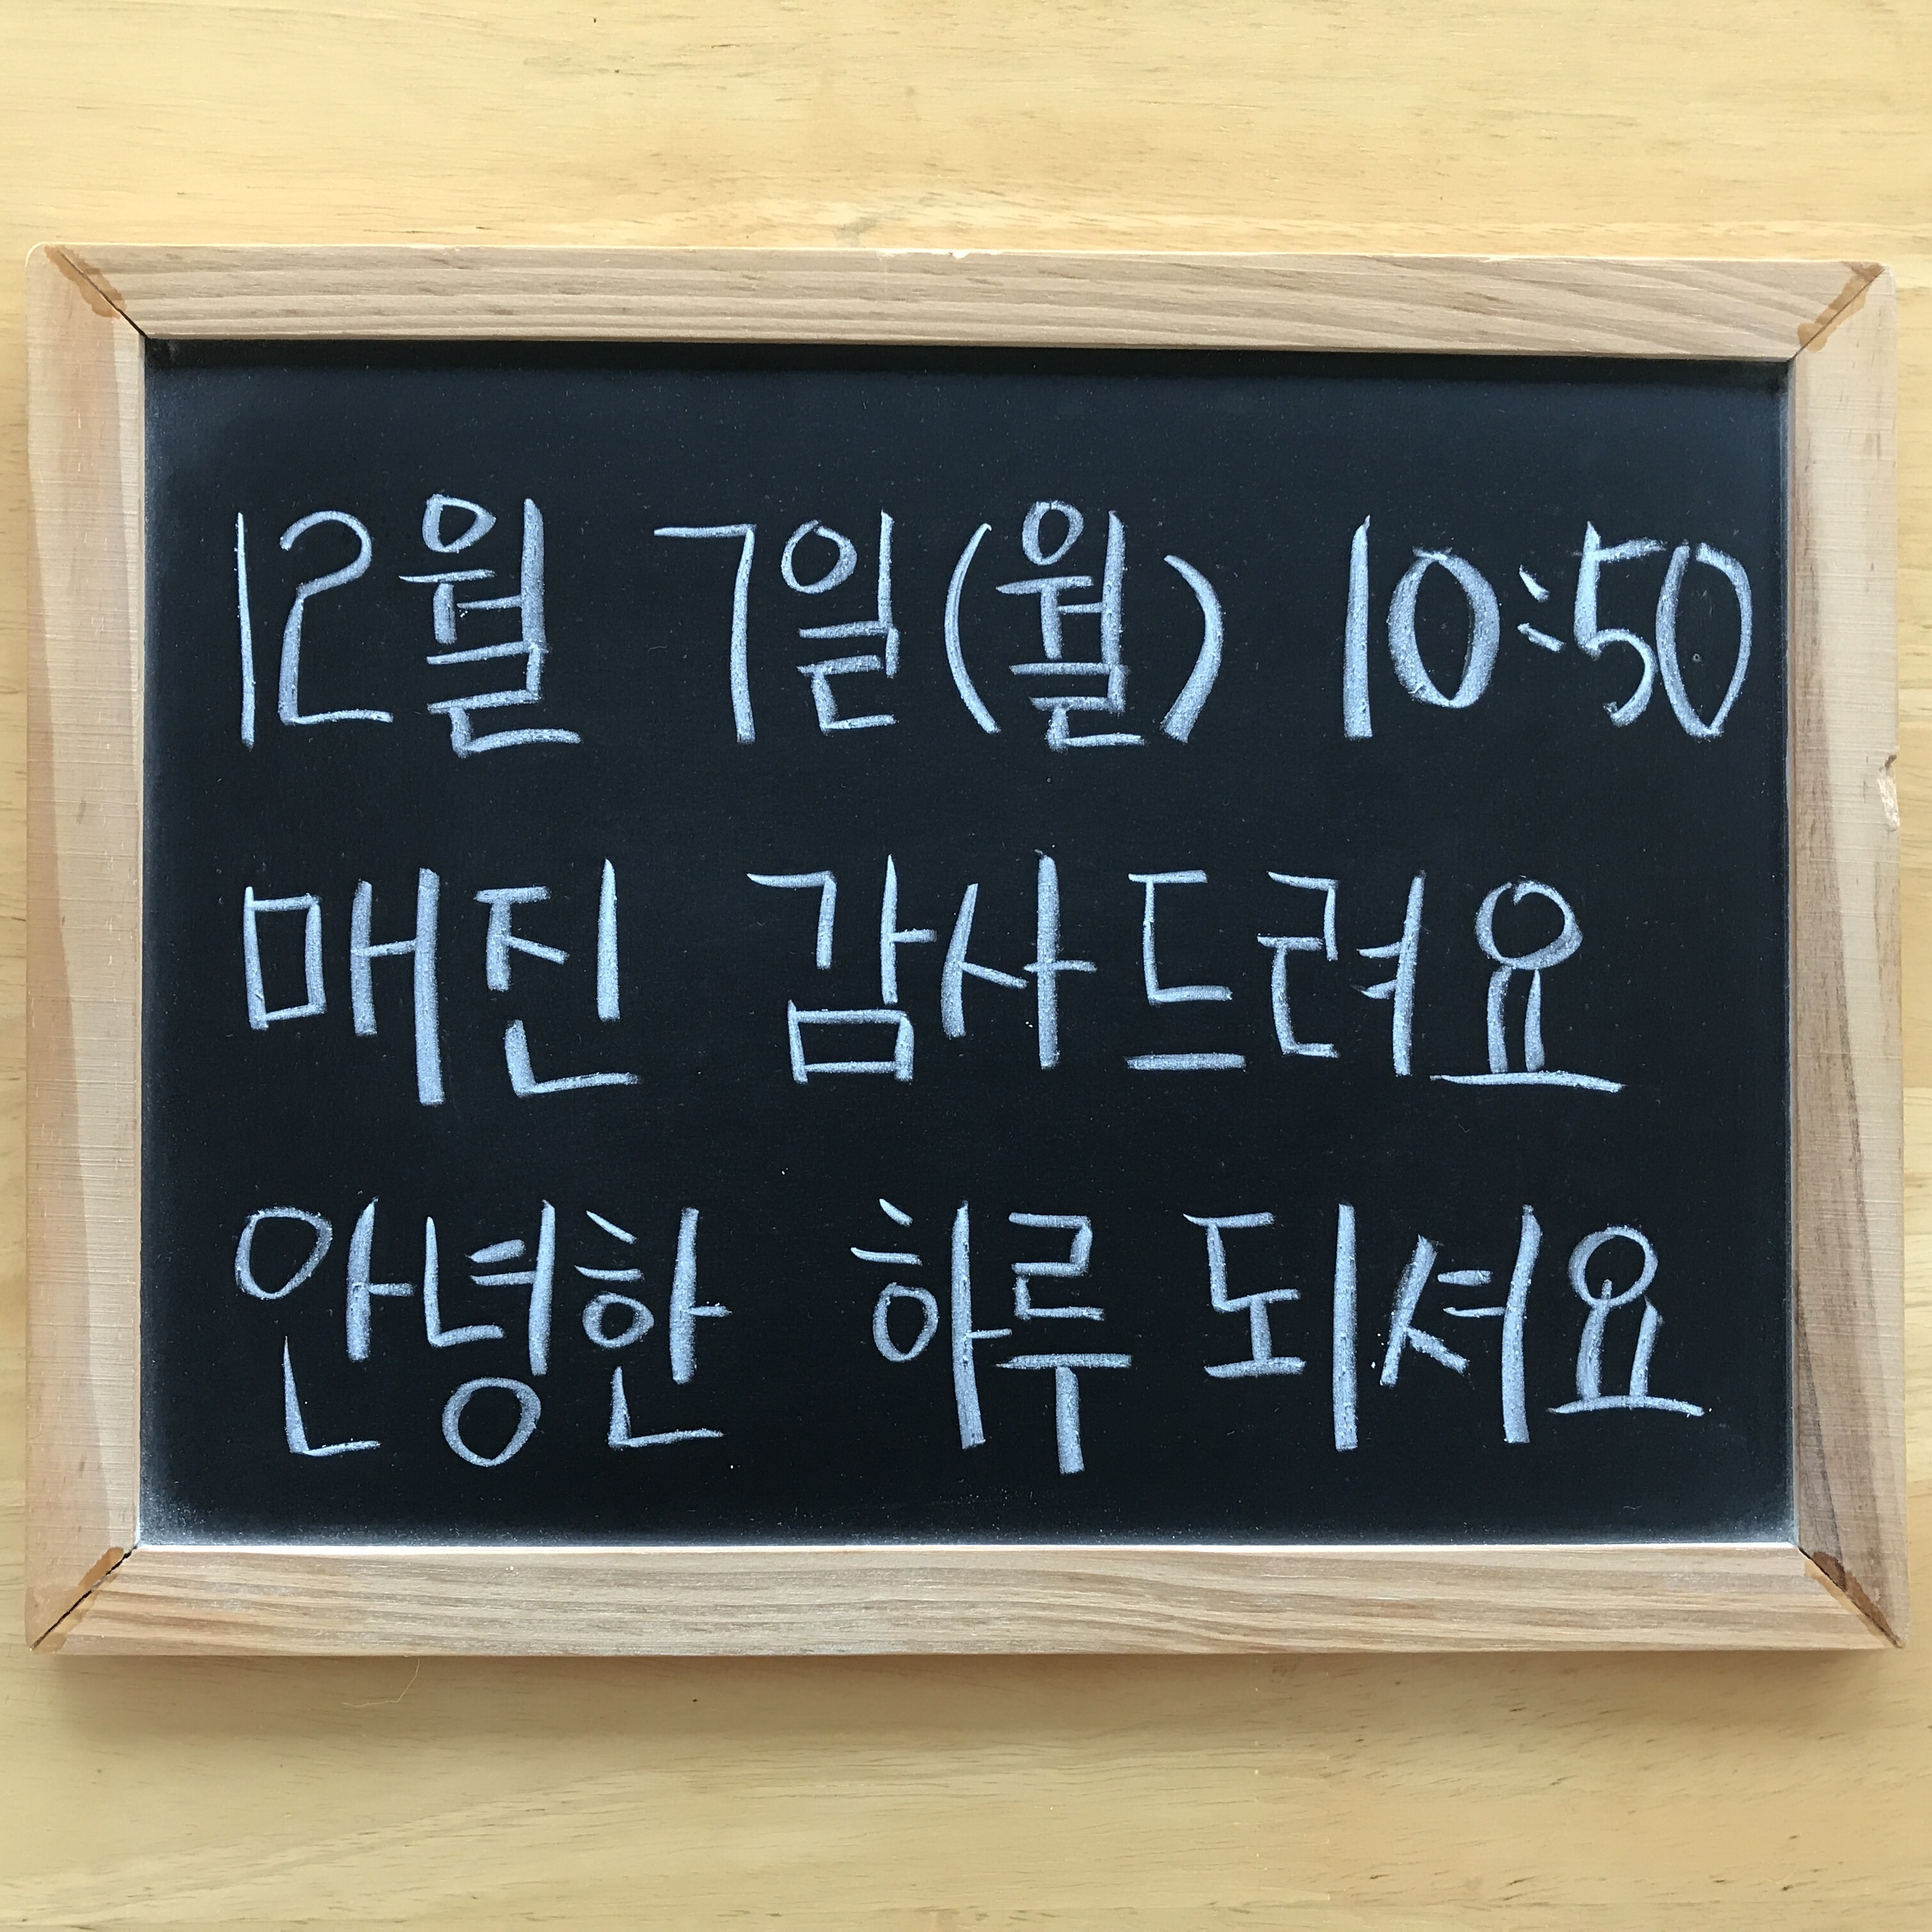 12월 7일(월) 10:50
매진 감사드려요
안녕한 하루 되셔요